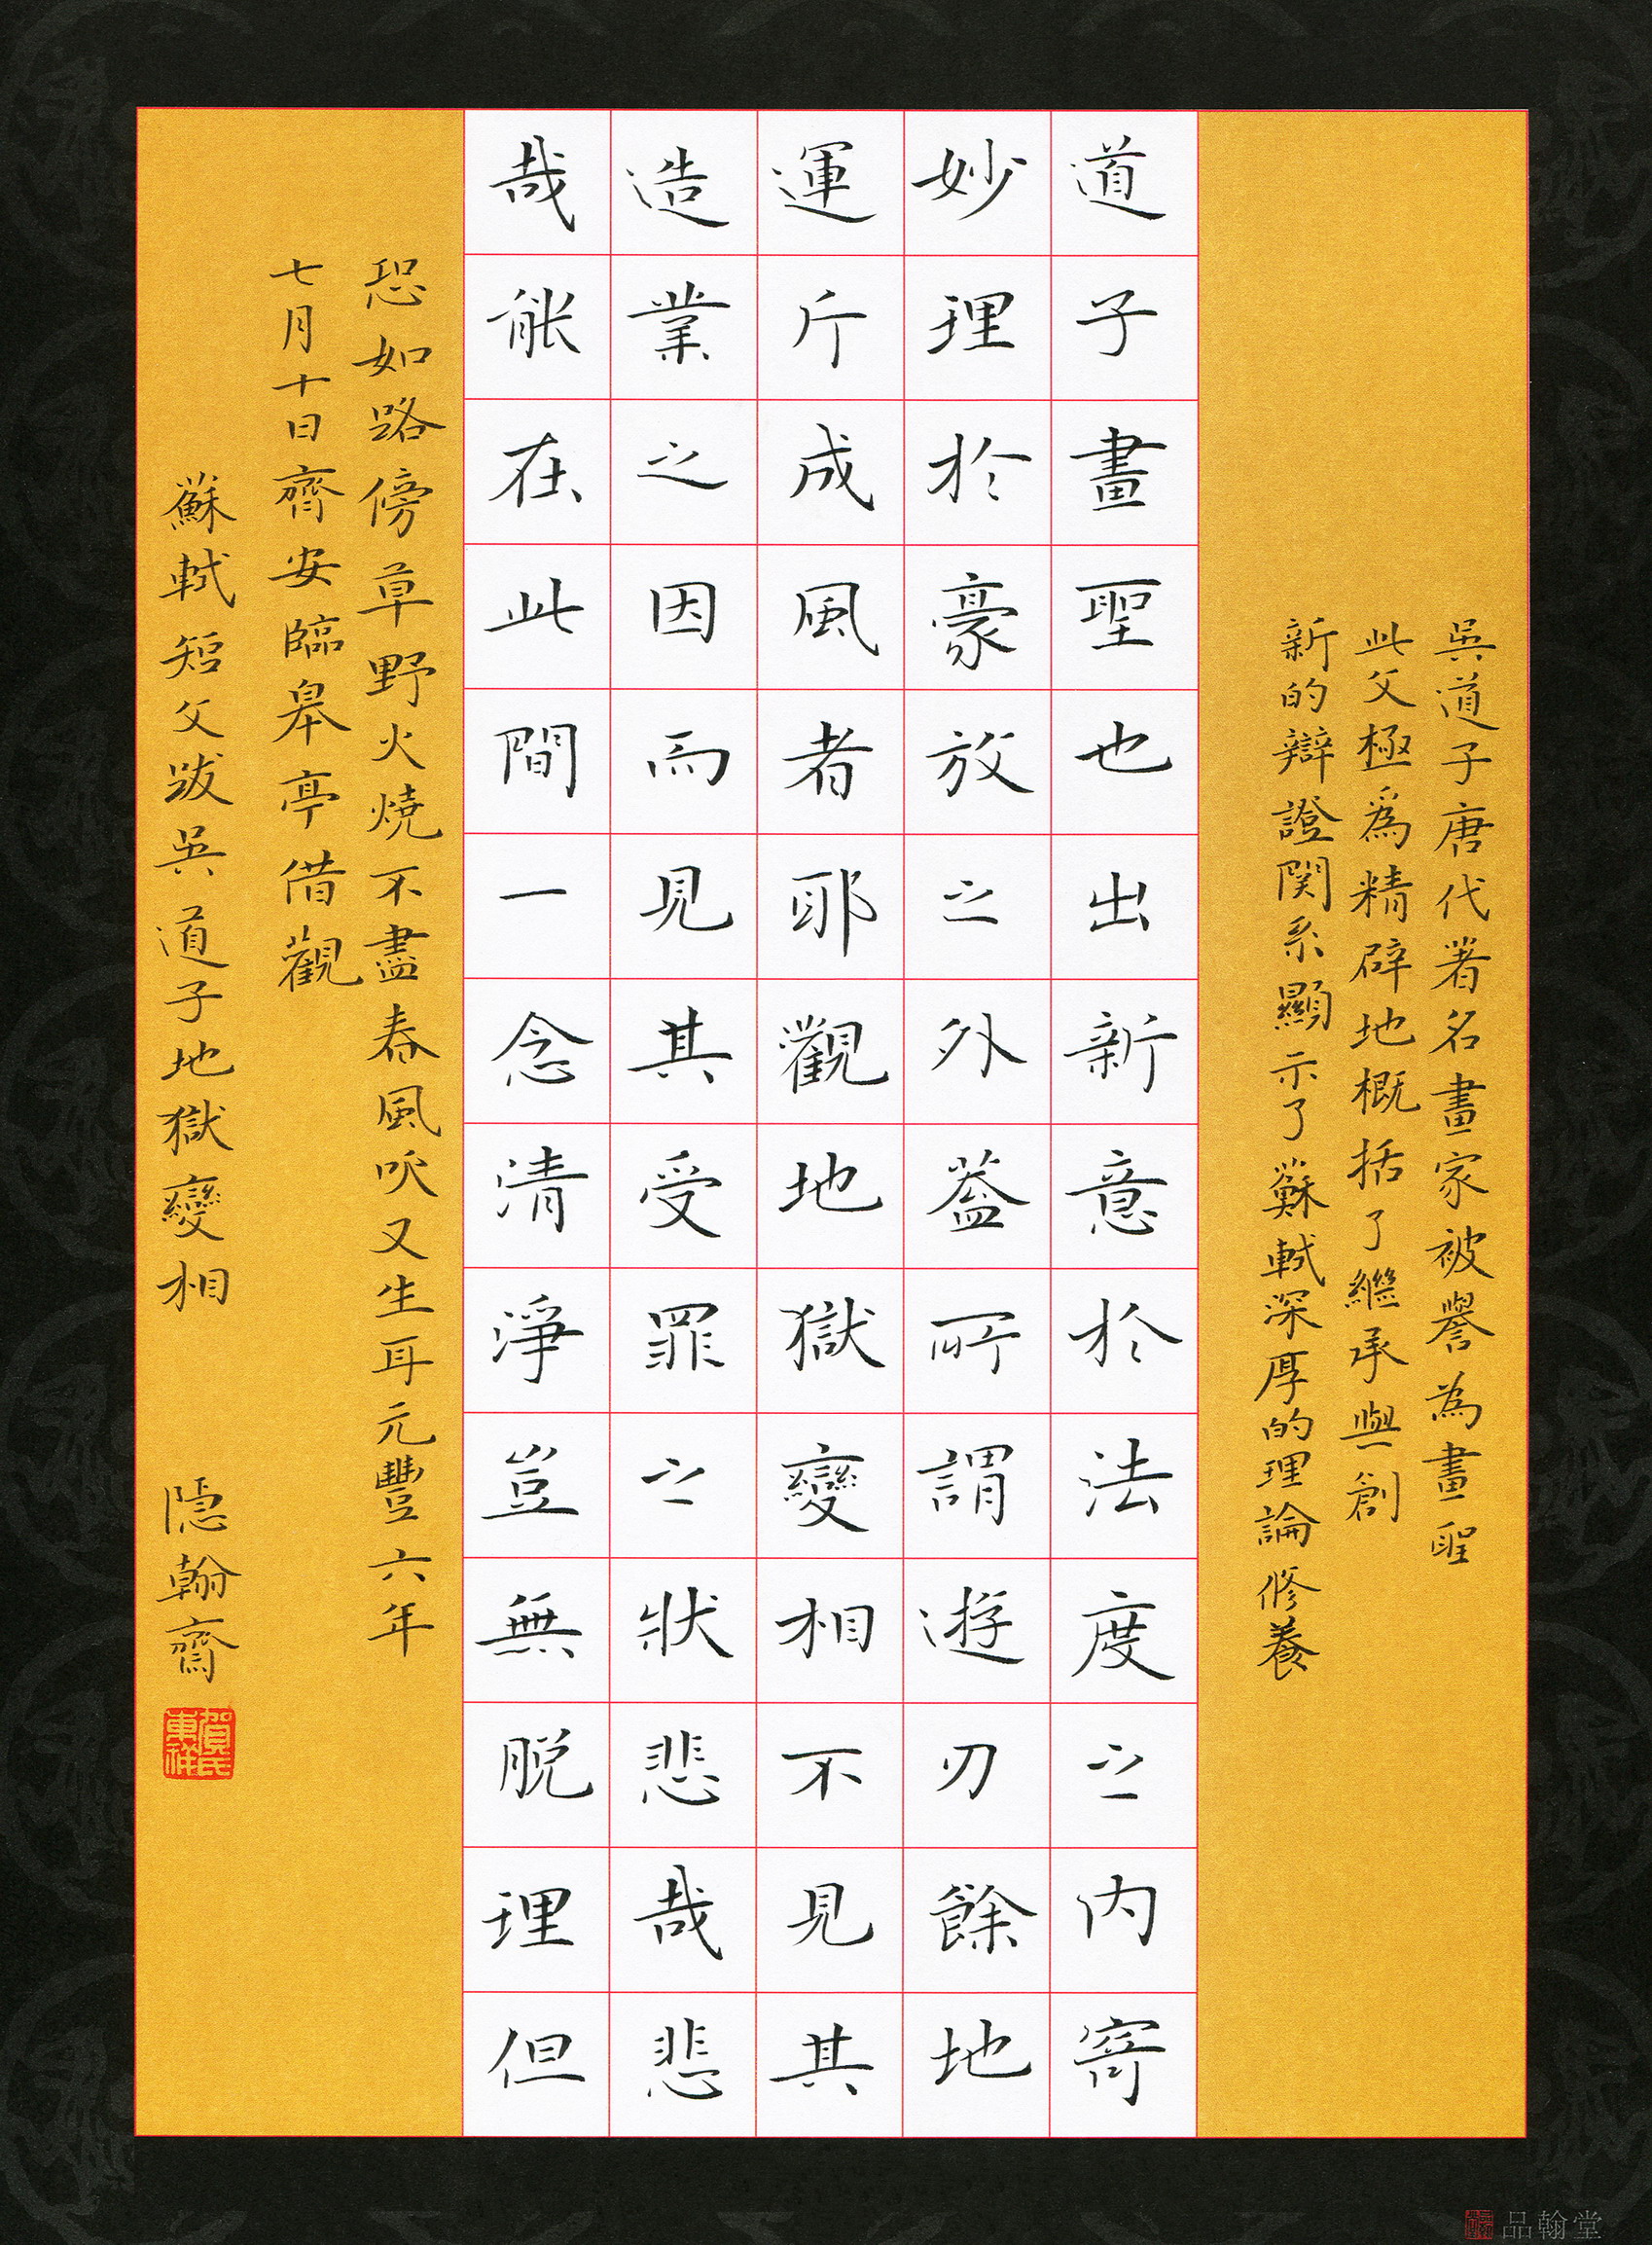 吳道子唐代著名畫家被譽為畫聖
此文極為精辟地概括了繼承與創
新的辯證関系顯示了蘇軾深厚的理論修養
道子畫聖也出新意於法度之內寄
妙理於豪放之外蓋所謂遊刃餘地
運斤成風者耶觀地獄變相不見其
造業之因而見其受罪之狀悲哉悲
哉能在此間一念清淨豈無脫理但
恐如路傍草野火燒不盡春風吹又生耳元豐六年
七月十日齊安臨皋亭借觀
蘇軾短文跋吳道子地獄變相
隱翰齋
賀氏東祥
品翰堂